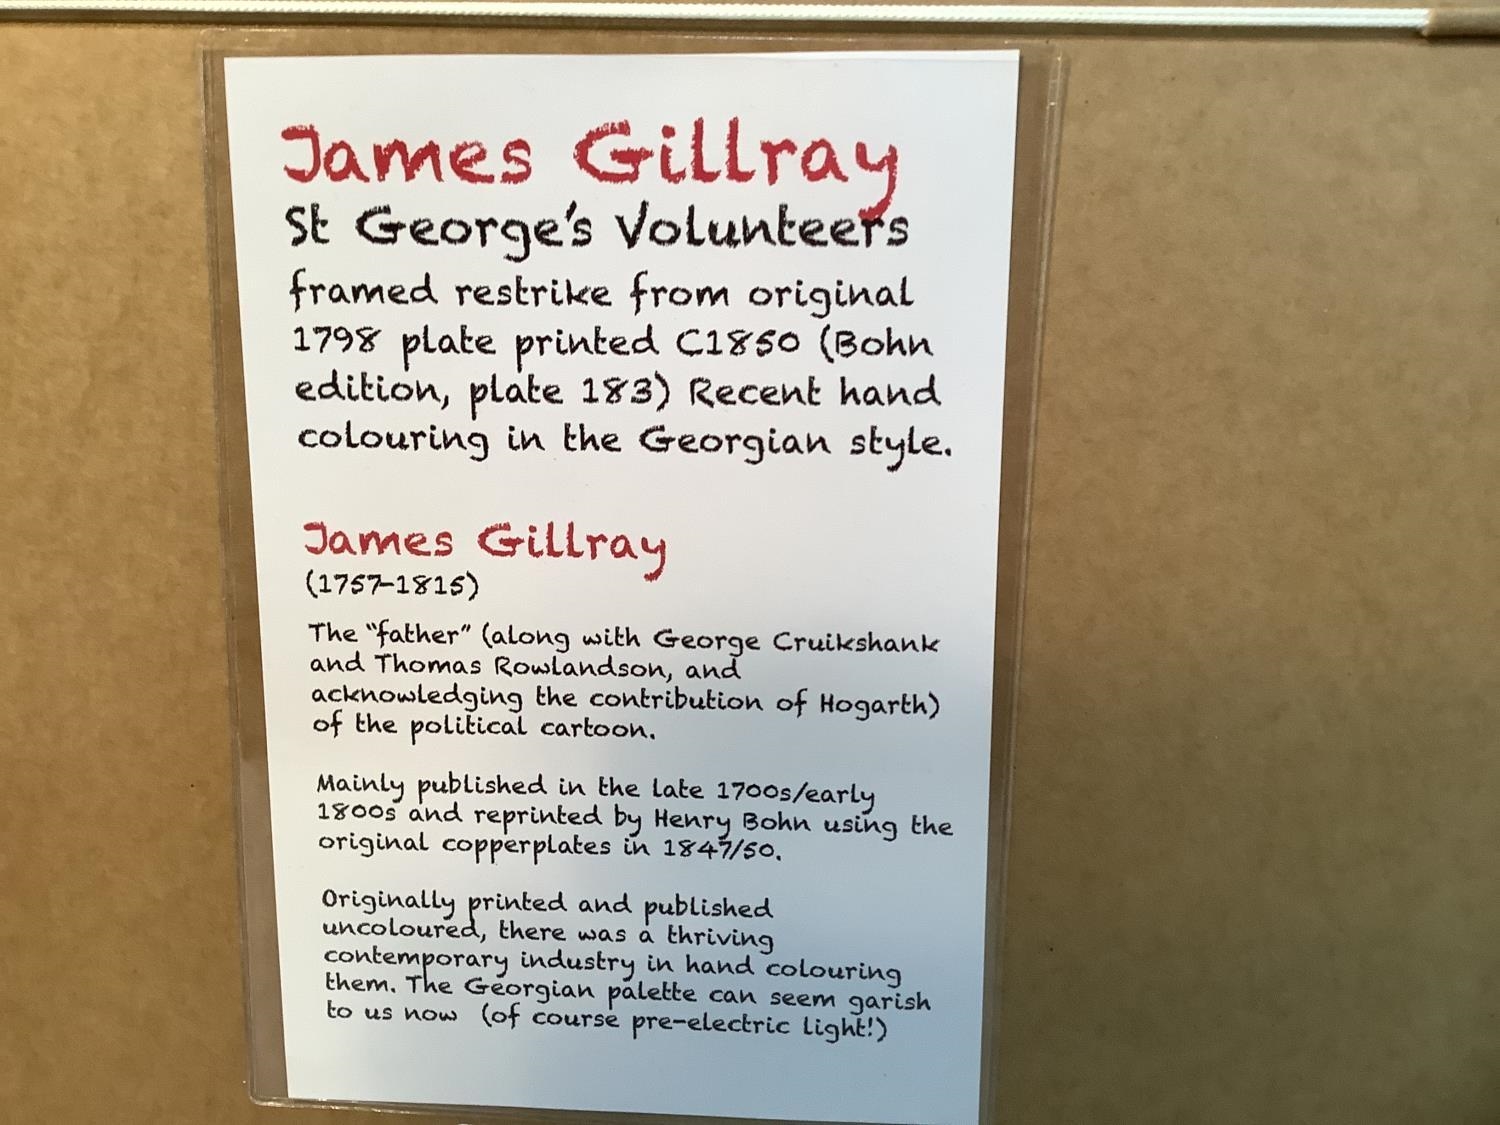 James Gillray
St George's Volunteers
framed restrike from original
1798 plate printed C1850 (Bohn
edition, plate 183) Recent hand
colouring in the Georgian style.
James Gillray
(1757-1815)
The "father" (along with George Cruikshank
and Thomas Rowlandson, and
acknowledging the contribution of Hogarth)
of the political cartoon.
Mainly published in the late 1700s/early
1800s and reprinted by Henry Bohn using the
original copperplates in 1847/50.
Originally printed and published
uncoloured, there was a thriving
contemporary industry in hand colouring
them. The Georgian palette can seem garish
to us now (of course pre-electric light!)